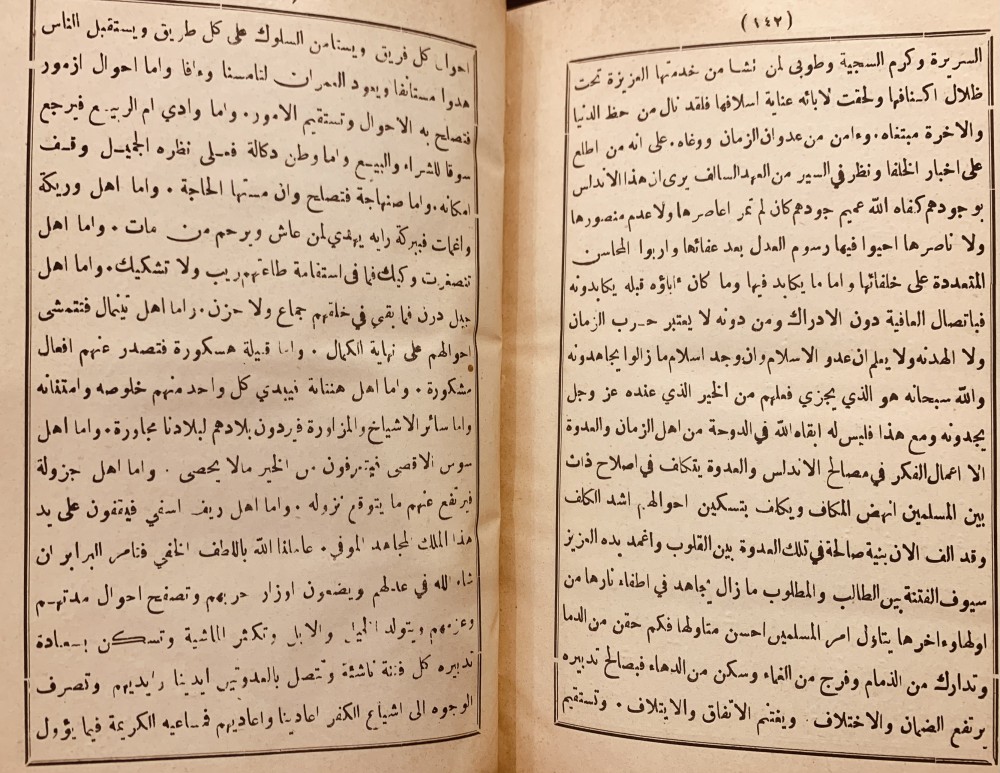 (١٤٢)
السريرة وكرم السجية وطوبى لمن نشا من خدمتها العزيزة تحت
ظلال اكنافها ولحقت لابائه عناية اسلافها فلقد نال من حظ الدنيا
والاخرة مبتغاه. وءامن من عدوان الزمان ووغاه. على انه من اطلع
على اخبار الخلفا ونظر في السير من العهد السالف يرى ان هذا الاندلس
بوجودهم كفاه الله عميم جودهم كان لم تمر اعاصرها ولا عدم منصورها
ولا ناصرها احيوا فيها رسوم العدل بعد عفائها واربوا المحاسن
المتعددة على خلفائها واما ما يكابد فيها وما كان ءاباؤه قبله يكابدونه
فباتصال العافية دون الادراك ومن دونه لا يعتبر حرب الزمان
ولا الهدنه ولا يعلم ان عدو الاسلام وان وجد اسلام ما زالوا يجاهدونه
والله سبحانه هو الذي يجزي فعلهم من الخير الذي عنده عز وجل
يجدونه ومع هذا فليس له ابقاه الله في الدوحة من اهل الزمان والعدوة
الا اعمال الفكر في مصالح الاندلس والعدوة يفكاف في اصلاح ذات
بين المسلمين انهض المكاف ويكاف بتسكين احوالهم اشد الكلف
وقد الف الان بنية صالحة في تلك العدوة بين القلوب واغمد يده العزيز
سيوف الفتنة بين الطالب والمطلوب ما زال يجاهد في اطفاء نارها من
اولها وءاخرها يتاول امر المسلمين احسن متاولها فكم حقن من الدما
وتدارك من الذمام وفرج من الغماء وسكن من الدهاء فبصالح تدبيره
يرتفع الضمان والاختلاف. ويغتنم الاتفاق والايتلاف. وتستقيم
احوال كل فريق ويستامن السلوك على كل طريق ويستقبل الناس
هدوا مستانفا ويعود العمران لنامسنا وءافا واما احوال ازمور
فتصلح به الاحوال وتستقيم الامور. واما وادي ام الربيع فيرجع
سوقا للشراء والبيع واما وطن دكالة فعلى نظره الجميل وقف
امكانه. واما صنهاجة فتصلح وان مستها الحاجة. واما اهل وريكة
واغمات فببركة رايه يهدي لمن عاش ويرحم من مات. واما اهل
تنصغرت وكيك فما في استقامة طاعتهم ريب ولا تشكيك. واما اهل
جبل درن فما بقي في خلقهم جماع ولا حزن. واما اهل تينمال فتتمشى
احوالهم على نهاية الكمال. واما قبيلة هسكورة فتصدر عنهم افعال
مشكورة. واما اهل هنتاتة فيبدي كل واحد منهم خلوصه وامتنانه
واما سائر الاشياخ والمزاورة فيردون بلادهم لبلادنا مجاورة. واما اهل
سوس الاقصى فيتعرفون من الخير مالا يحصى. واما اهل جزولة
فيرتفع عنهم ما يتوقع نزوله. واما اهل ريف اسفي فيقفون على يد
هذا الملك المجاهد الموفي. عاملنا الله باللطف الخفي فناصر البرابر ان
شاء الله في عدلهم ويضعون اوزار حربهم وتصفح احوال مدتهم
وعزمهم ويتولد الخيل والابل وتكثر الماشية وتسكن بسعادة
تدبيره كل فتنة ناشئة وتتصل بالعدوتين ايدينا وايديهم وتصرف
الوجوه الى اشياع الكفر اعادينا واعاديهم فمساعيه الكريمة فيما يؤول